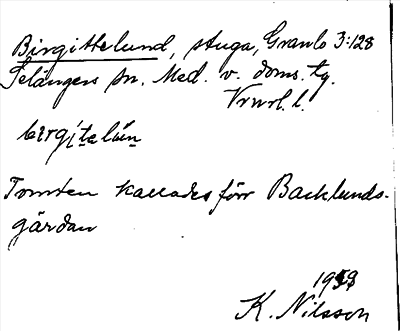 Birgittelund, stuga, Granlo 3:128
Selångers sn. Med. v. doms. tg.
birgitelún
Tomten kallades förr Backlunds-
gårdan
1959
K. Nilsson